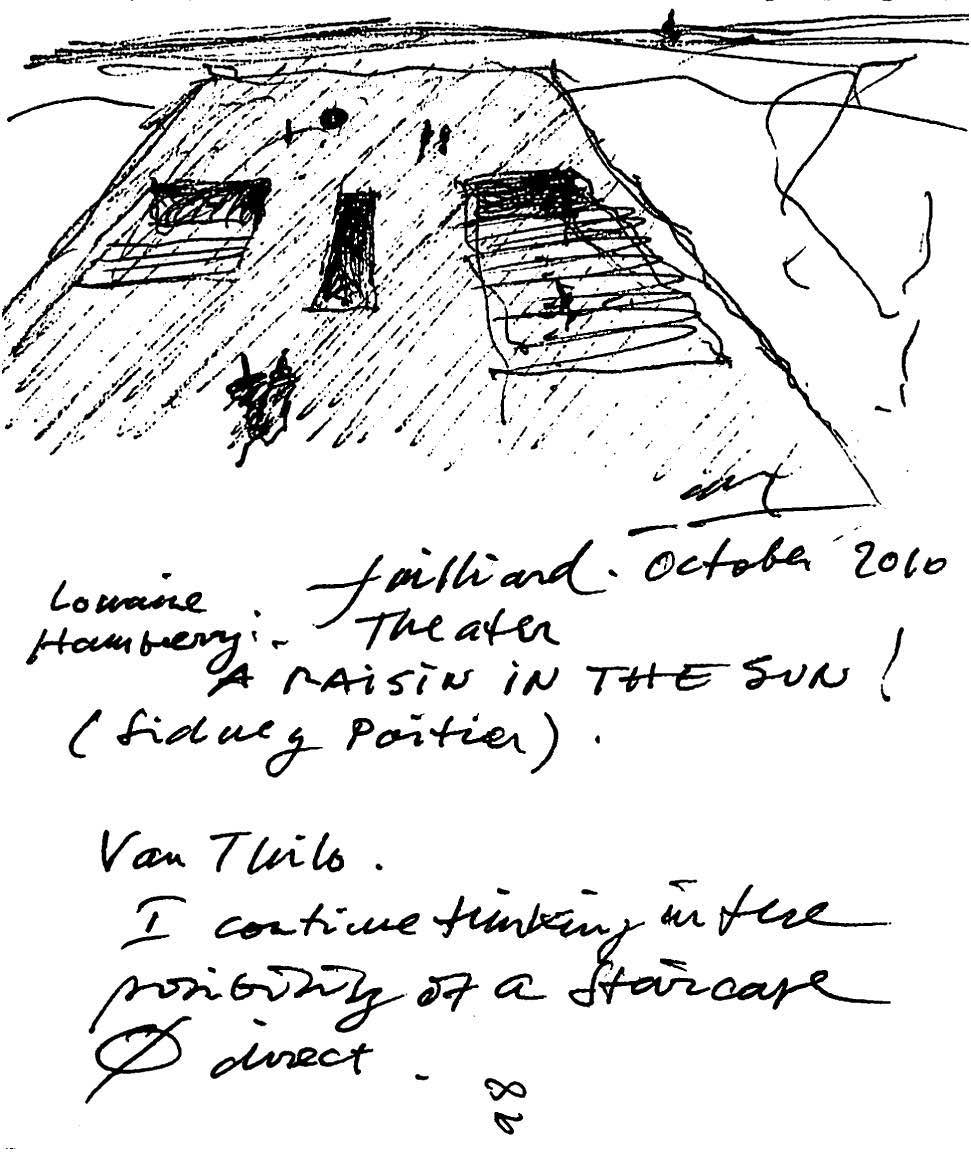 Juilliard. October 2010
Lorraine
Hansberry:- Theater
A RAISIN IN THE SUN!
(Sidney Poitier).
Van Thilo.
I continue thinking in the
posibility of a staircase
Ø direct.
98